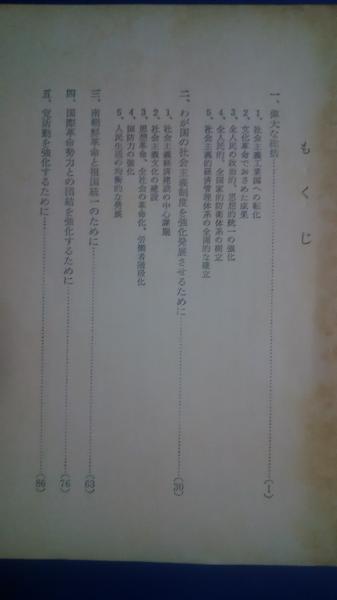 もくじ
一、偉大な総括……(1)
1、社会主義工業国への転化
2、文化革命でおさめた成果
3、全人民の政治的、思想的統一の強化
4、全人民的、全国家的防衛体系の樹立
5、社会主義的経済管理体系の全面的な確立
二、わが国の社会主義制度を強化発展させるために……(30)
1、社会主義経済建設の中心課題
2、社会主義文化の建設
3、思想革命、全社会の革命化、労働者階級化
4、国防力の強化
5、人民生活の均衡的な発展
三、南朝鮮革命と祖国統一のために……(63)
四、国際革命勢力との団結を強化するために……(76)
五、党活動を強化するために……(86)